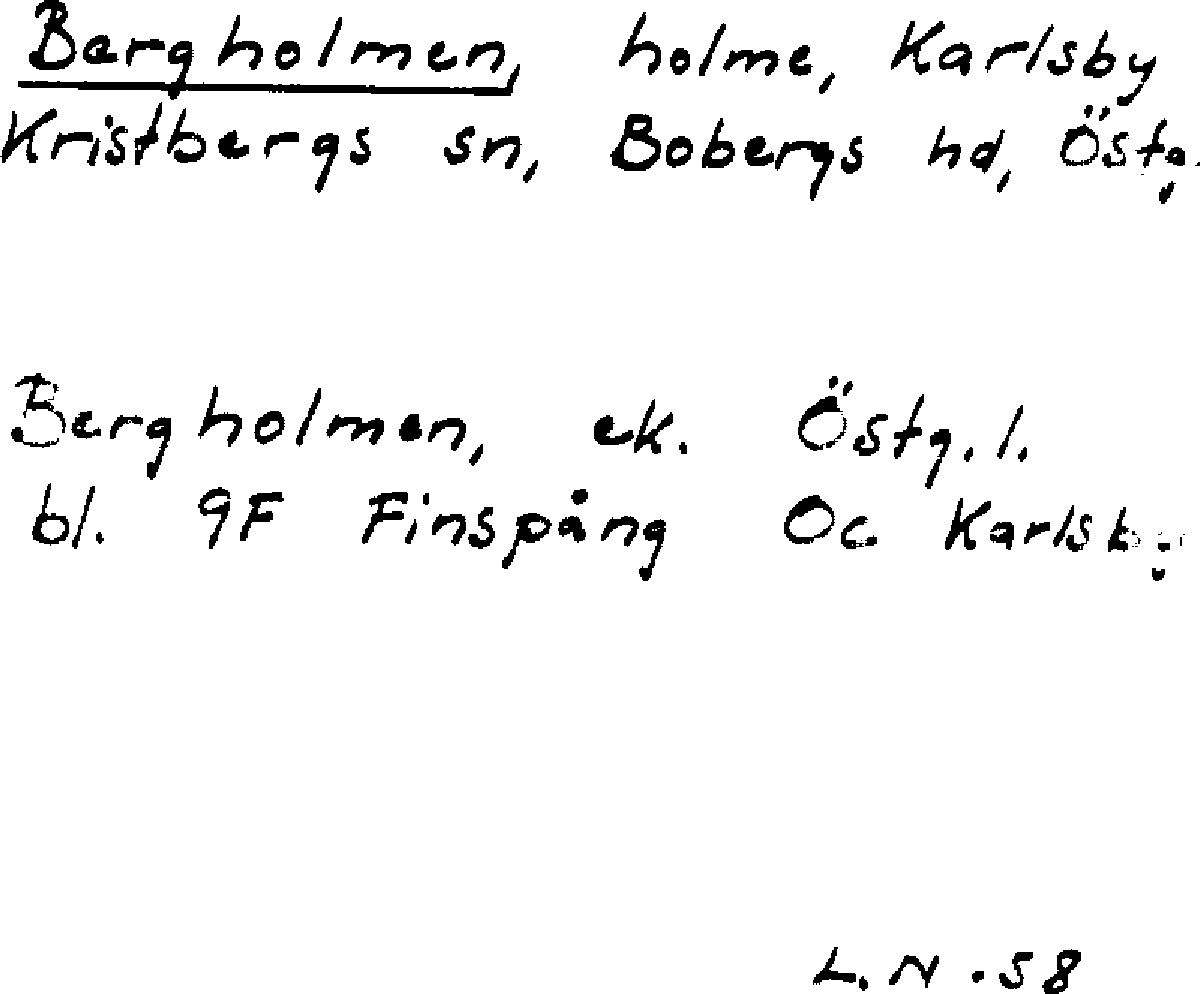 Bergholmen, holme, Karlsby
Kristbergs sn, Bobergs hd, Östg.
Bergholmen, ek. Östg. l.
bl. 9F Finspång Oc Karlsby
L. N. 58